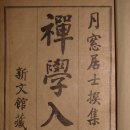 月窓居士撰集
禪學入
新文館藏